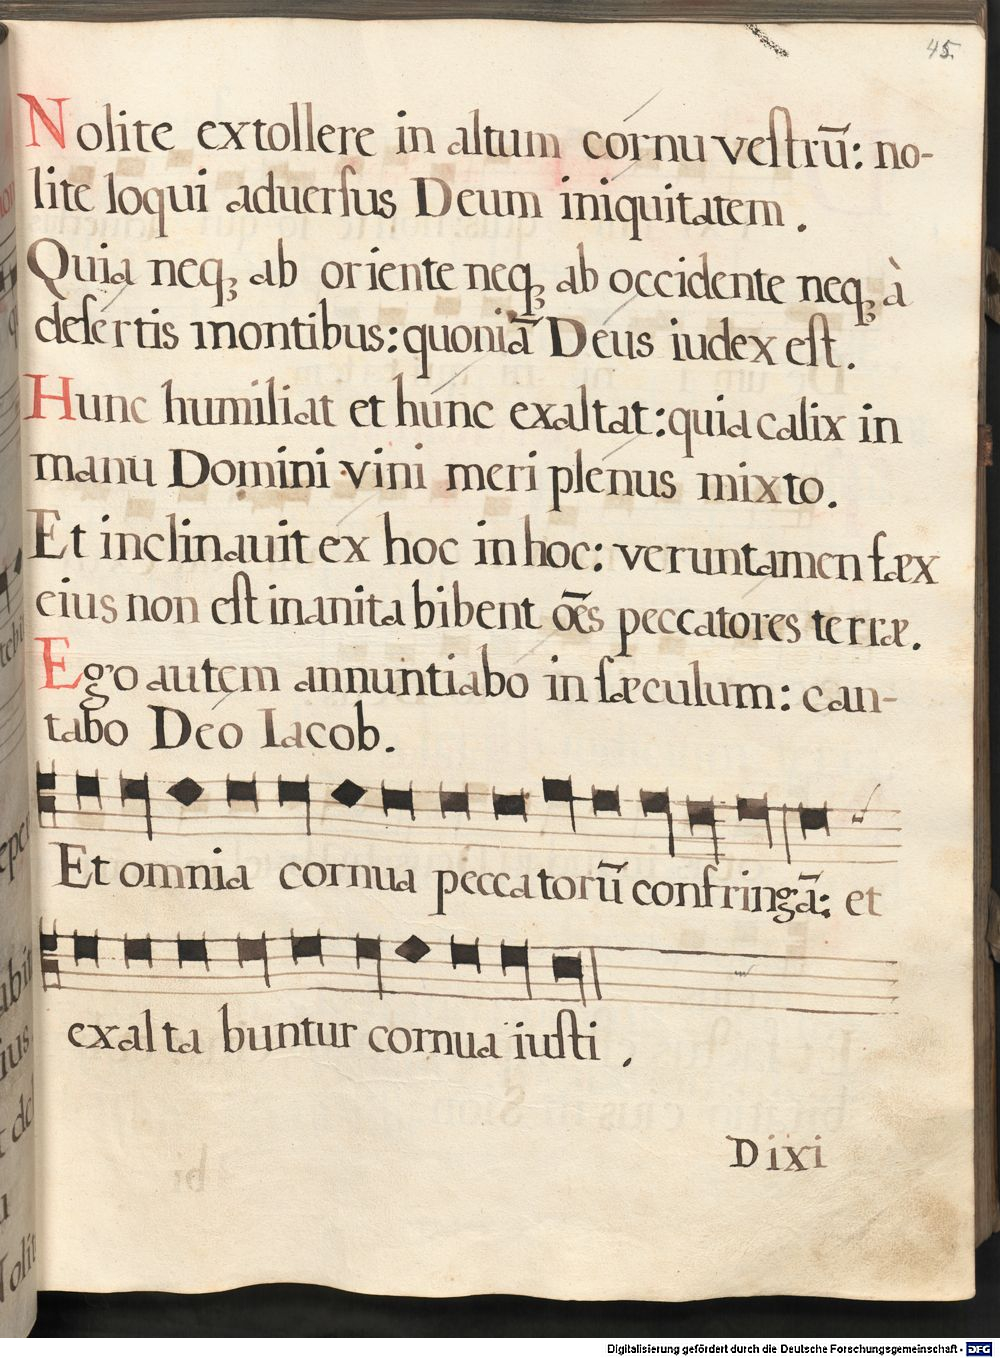 45.
Nolite extollere in altum cornu veſtrū: no-
lite loqui aduerſus Deum iniquitatem.
Quia neqꝫ ab oriente neqꝫ ab occidente neqꝫ à
deſertis montibus: quoniā Deus iudex eſt.
Hunc humiliat et hunc exaltat: quia calix in
manu Domini vini meri plenus mixto.
Et inclinauit ex hoc in hoc: veruntamen fæx
eius non eſt inanita bibent oēs peccatores terræ.
Ego autem annuntiabo in ſæculum: can-
tabo Deo Iacob.
Et omnia cornua peccatorū confringā: et
exalta buntur cornua iuſti.
Dixi
Digitalisierung gefördert durch die Deutsche Forschungsgemeinschaft - DFG